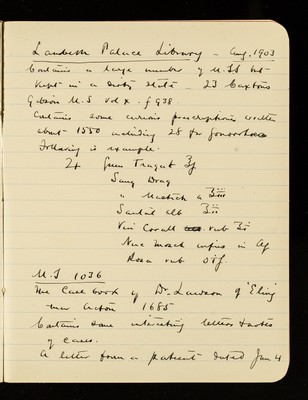 Lambeth Palace Library – Aug. 1903
Contains a large number of M.SS but
kept in a dirty state – 23 Caxtons
Gibson M.S vol x. f 938.
Contains some curious prescriptions written
about 1550 including 28 for gonorrhoea
Following is example.
Gum Tragat ʒj
Sang Drag
" Mastich a ʒiii
Santal alb ʒii
Vin Corall rub ʒi
Nuc mosch infus in Aq
Rosa rub
M.S 1036
The Case book of Dr. Lawson of Eling
near Acton 1685
Contains some interesting letters & notes
of cases.
A letter from a patient dated Jan 4